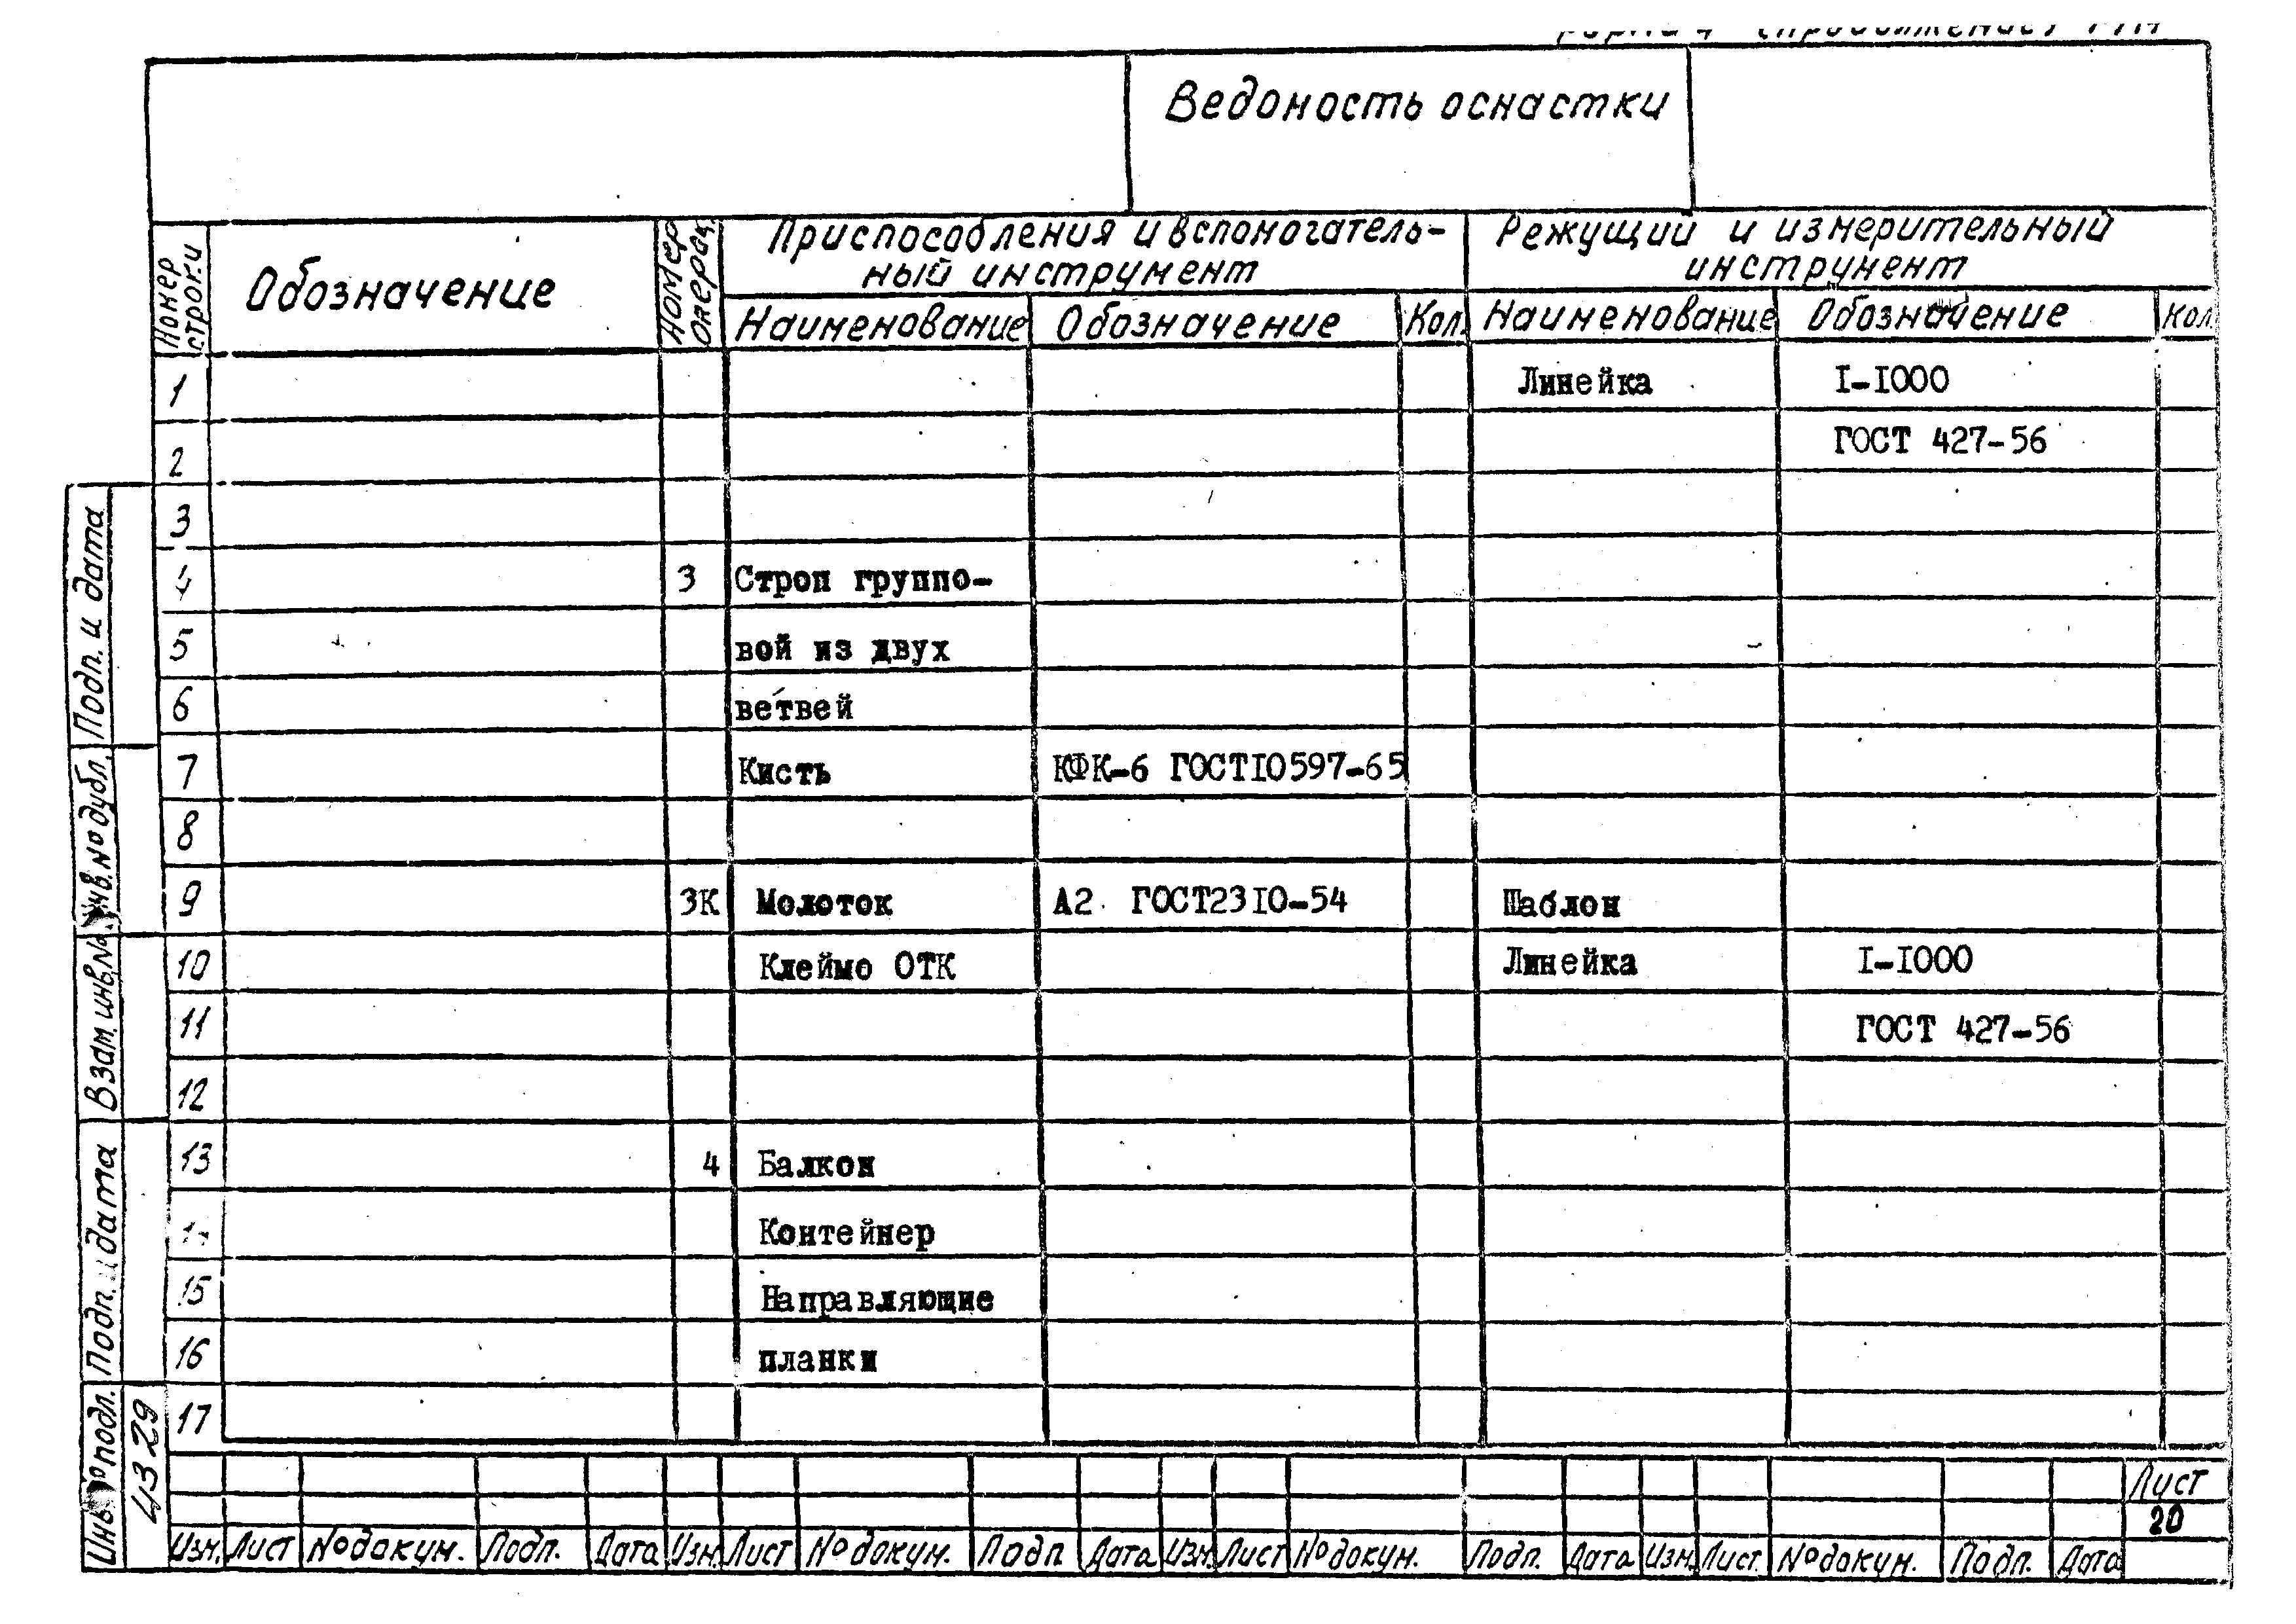 Ведомость оснастки
Номер строки
Обозначение
Номер операц.
Приспособления и вспомогатель-
ный инструмент
Режущий и измерительный
инструмент
Наименование Обозначение Кол. Наименование Обозначение Кол.
1 Линейка I-I000
2 ГОСТ 427-56
3
4 3 Строп группо-
5 вой из двух
6 ветвей
7 Кисть КФК-6 ГОСТI0597-65
8
9 3К Молоток А2 ГОСТ23I0-54 Шаблон
10 Клеймо ОТК Линейка I-I000
11 ГОСТ 427-56
12
13 4 Балкон
Контейнер
15 Направляющие
16 планки
17
Подп. и дата
Инв. № дубл.
Взам. инв. №
Подп. и дата
Инв. № подл.
4329
Лист
20
Изм. Лист № докум. Подп. Дата Изм. Лист № докум. Подп Дата Изм. Лист № докум. Подп. Дата Изм. Лист № докум. Подп. Дата